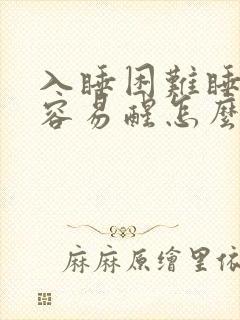 入睡困難睡
容易醒怎麼
麻麻原繪里依